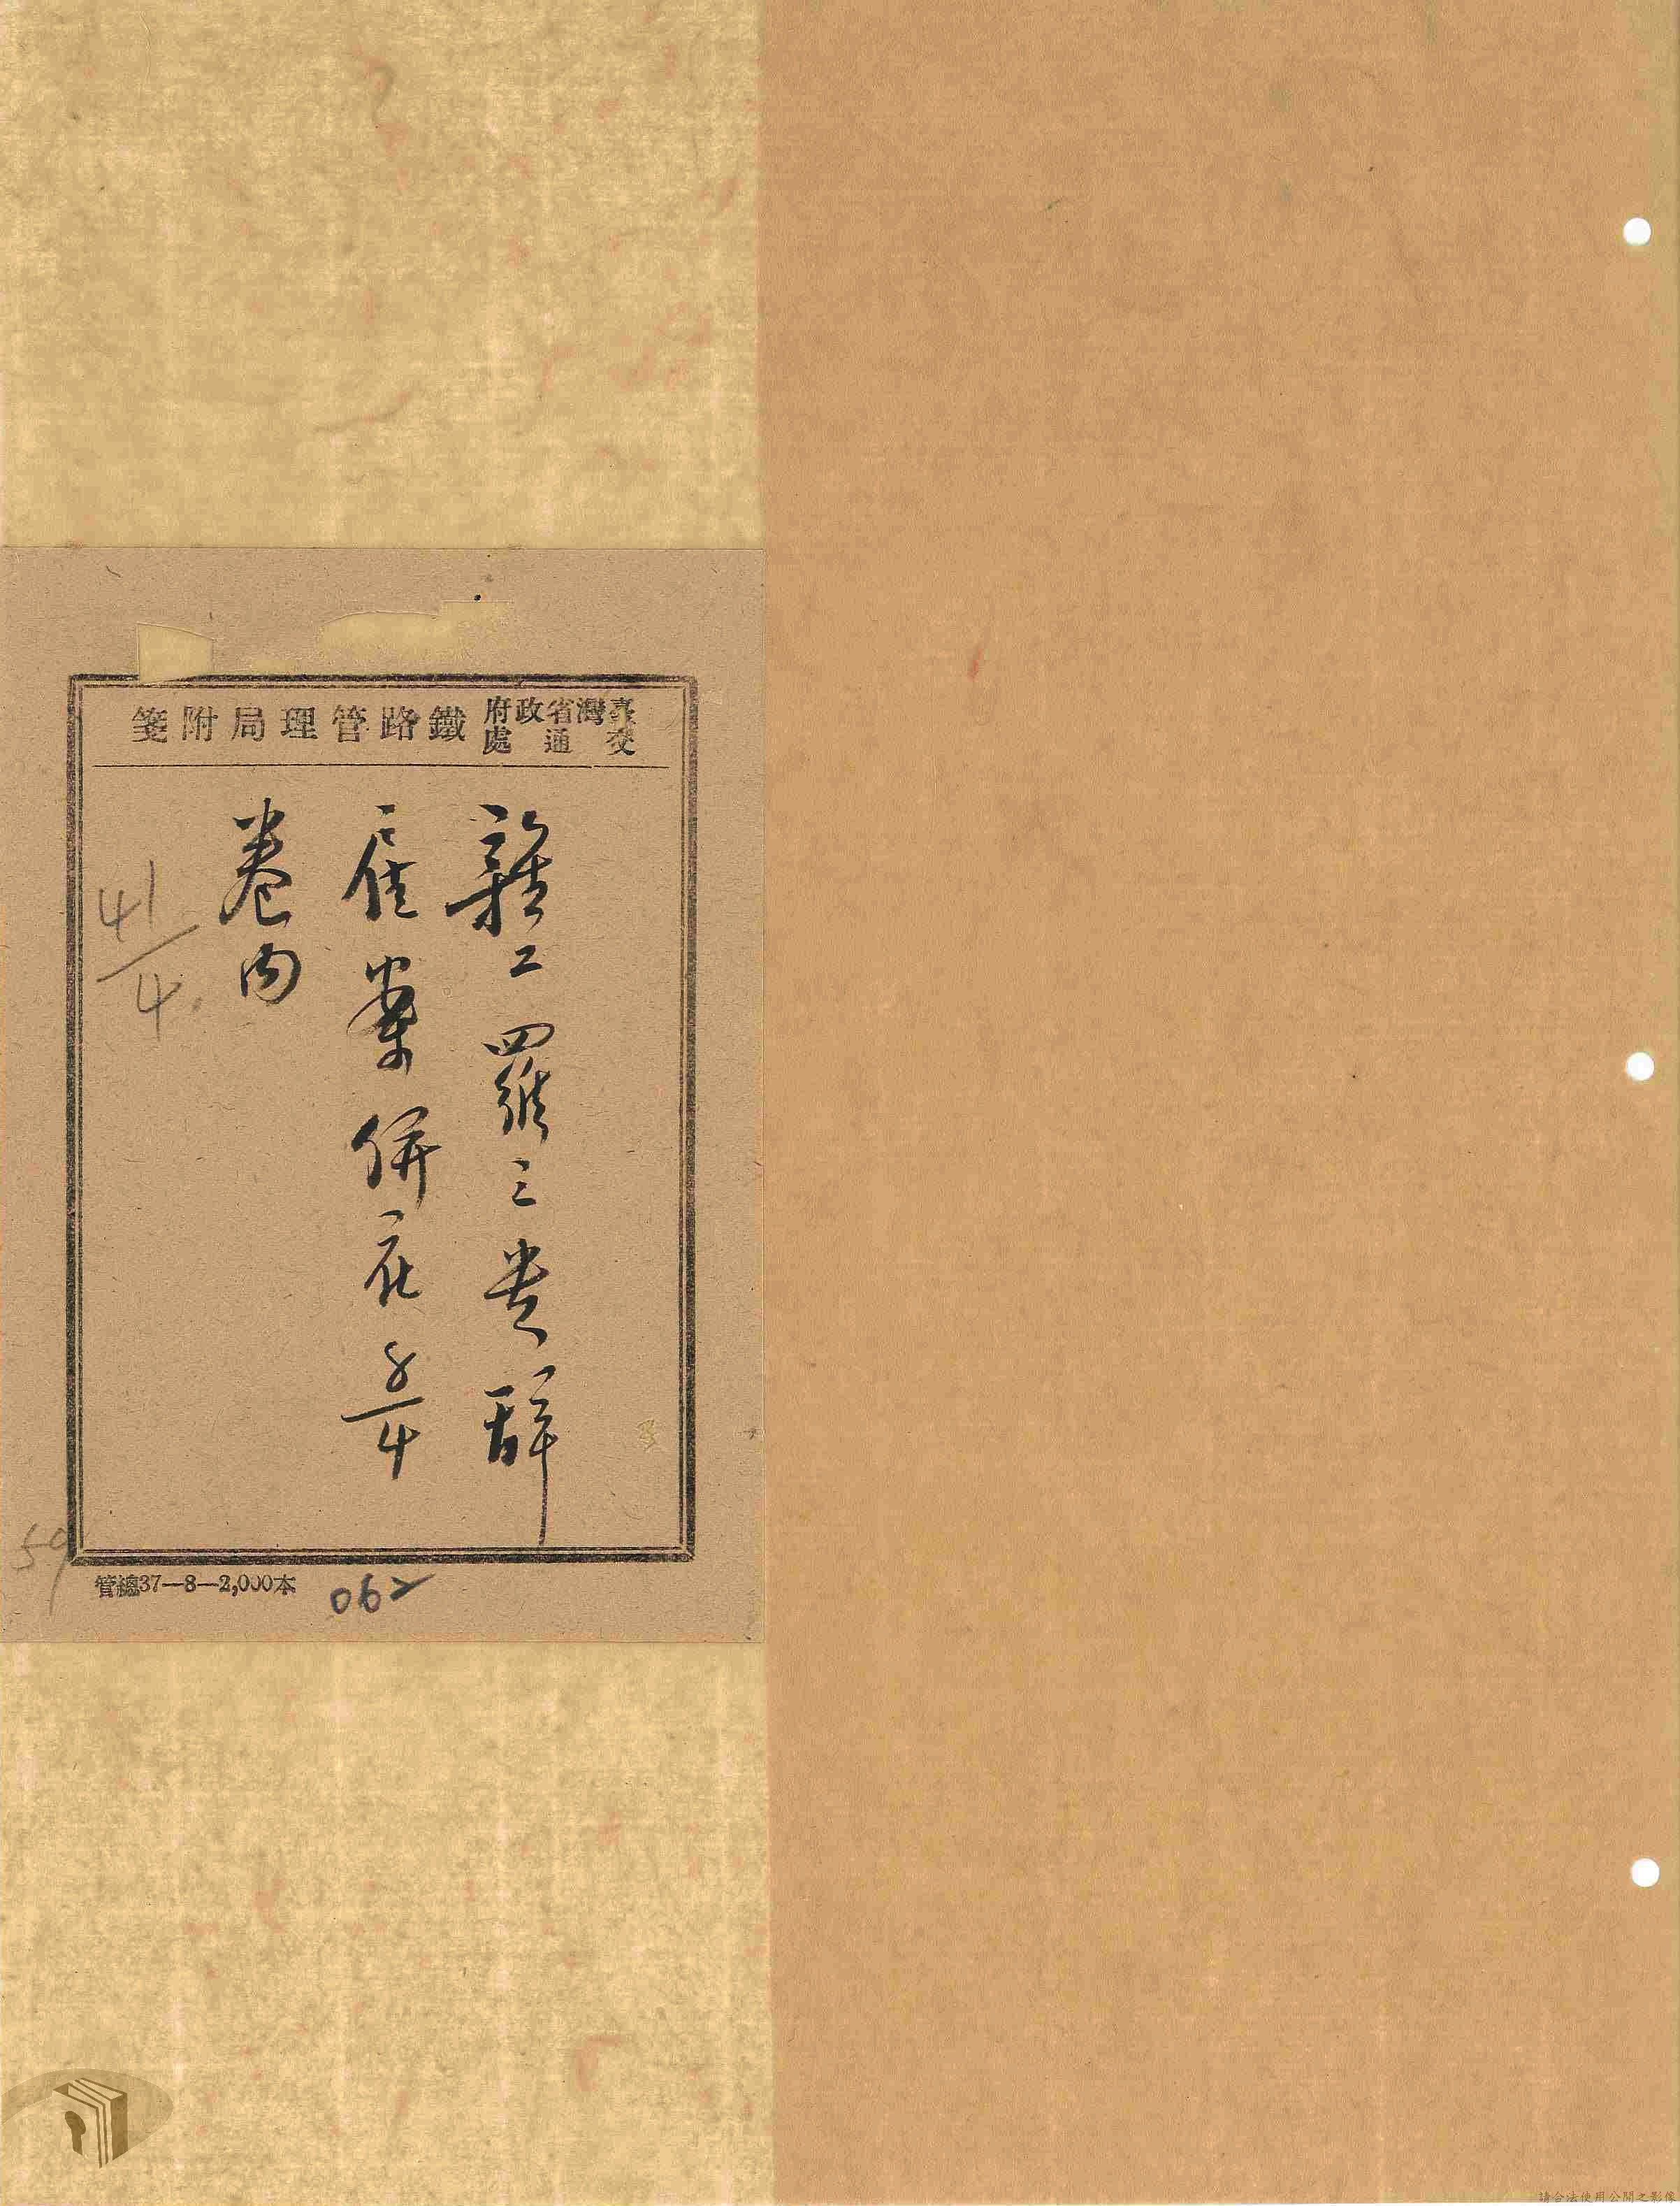 臺灣省政府
交通處
鐵路管理局附箋
雜工羅三貴辭
雇案併在 8/4
卷內
41/4
59
管總37—8—2,000本
062
請合法使用公開之影像